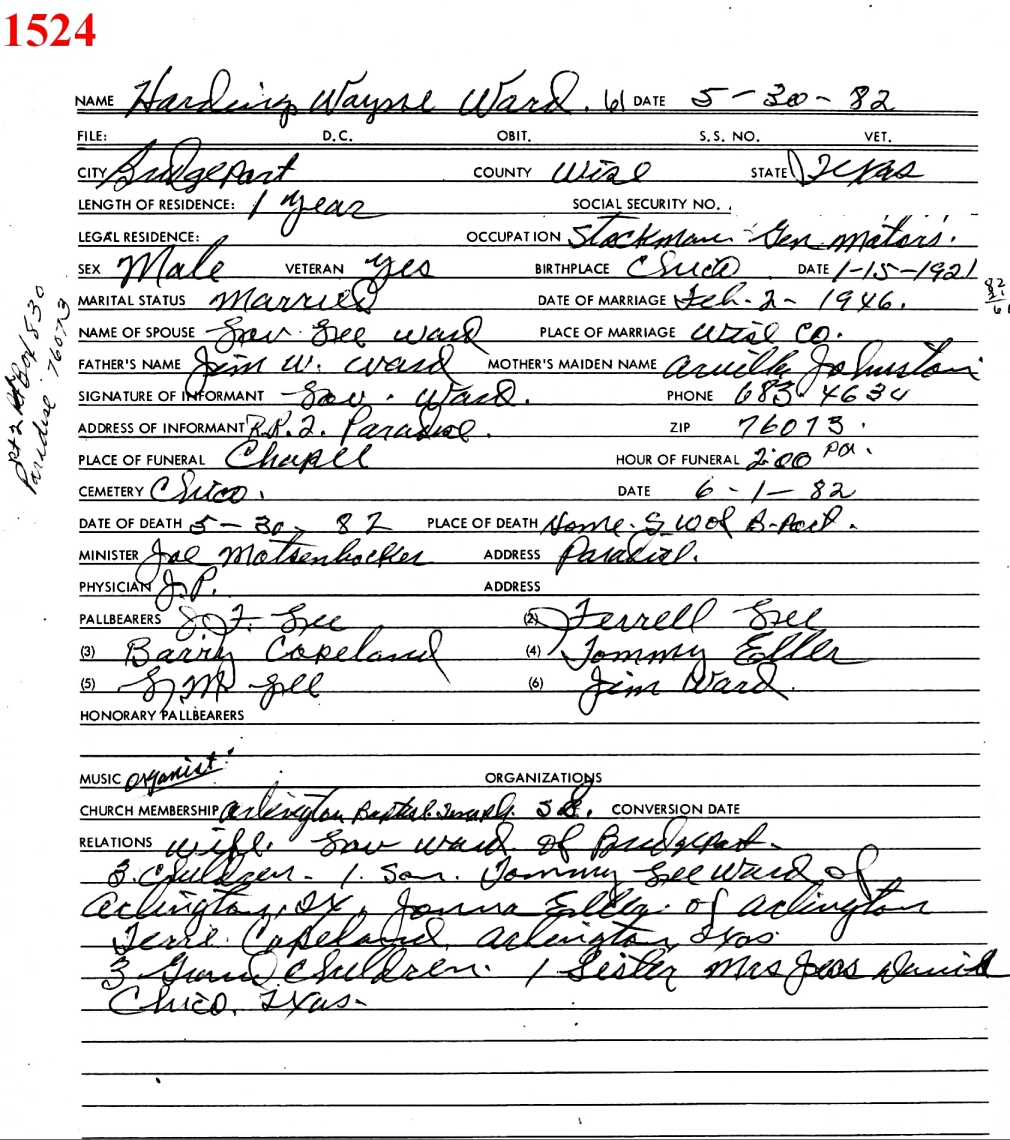 1524
NAME Harding Wayne Ward. 61 DATE 5-30-82
FILE: D.C. OBIT. S.S. NO. VET.
CITY Bridgeport COUNTY Wise STATE Texas
LENGTH OF RESIDENCE: 1 year SOCIAL SECURITY NO.
LEGAL RESIDENCE: OCCUPATION Stockman Gen Motors.
SEX Male VETERAN yes BIRTHPLACE Chico DATE 1-15-1921
MARITAL STATUS Married DATE OF MARRIAGE Feb-2-1946.
NAME OF SPOUSE Lou Lee Ward PLACE OF MARRIAGE Wise Co.
FATHER'S NAME Jim W. Ward MOTHER'S MAIDEN NAME Johnston
SIGNATURE OF INFORMANT Lou. Ward. PHONE 683-4634
ADDRESS OF INFORMANT R.R.2. Paradise. ZIP 76073.
PLACE OF FUNERAL Chapel HOUR OF FUNERAL 2:00 PM.
CEMETERY Chico. DATE 6-1-82
DATE OF DEATH 5-30-82 PLACE OF DEATH Home. S.W of B-Port.
MINISTER Joe Motsenbocker ADDRESS Paradise.
PHYSICIAN J.P. ADDRESS
PALLBEARERS J.F. Lee (2) Ferrell Lee
(3) Barry Copeland (4) Tommy Eller
(5) Lee (6) Jim Ward.
HONORARY PALLBEARERS
MUSIC Organist. ORGANIZATIONS
CHURCH MEMBERSHIP Arlington Baptist CONVERSION DATE
RELATIONS wife. Lou Ward of Bridgeport.
3 Children. 1. Son. Tommy Lee Ward of
Arlington, Tx, Eller of Arlington
Copeland, Arlington, Txas
3 Grand Children. 1 Sister Mrs Jess
Chico, Txas-
Rt 2 Box 830
Paradise 76073
82
21
61